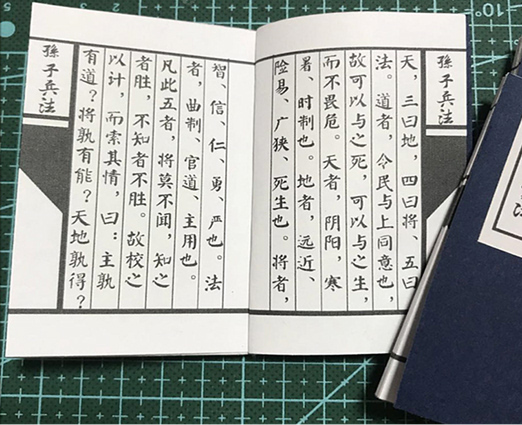 孫子兵法
天，三曰地，四曰将、五曰
法。道者，令民与上同意也，
故可以与之死，可以与之生，
而不畏危。天者，阴阳，寒
暑、时制也。地者，远近、
险易、广狭、死生也。将者，
智、信、仁、勇、严也。法
者，曲制、官道、主用也。
凡此五者，将莫不闻，知之
者胜，不知者不胜。故校之
以计，而索其情，曰：主孰
有道？将孰有能？天地孰得？
孫子兵法
10°
5